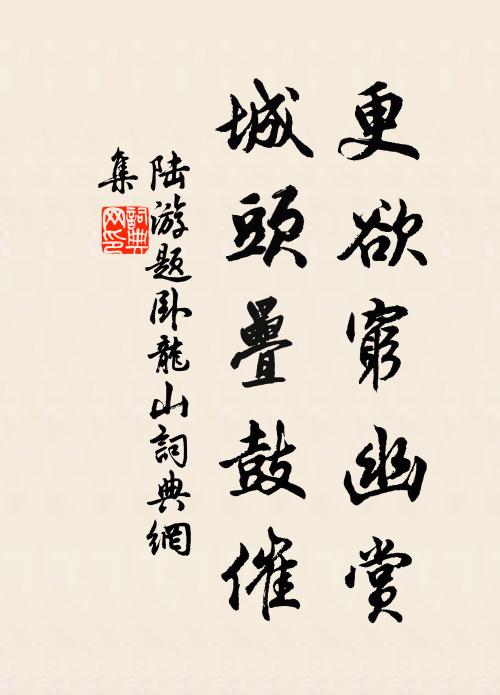 更欲窮幽賞
城頭疊鼓催
陆游题卧龍山詞典網
集
詞典网印